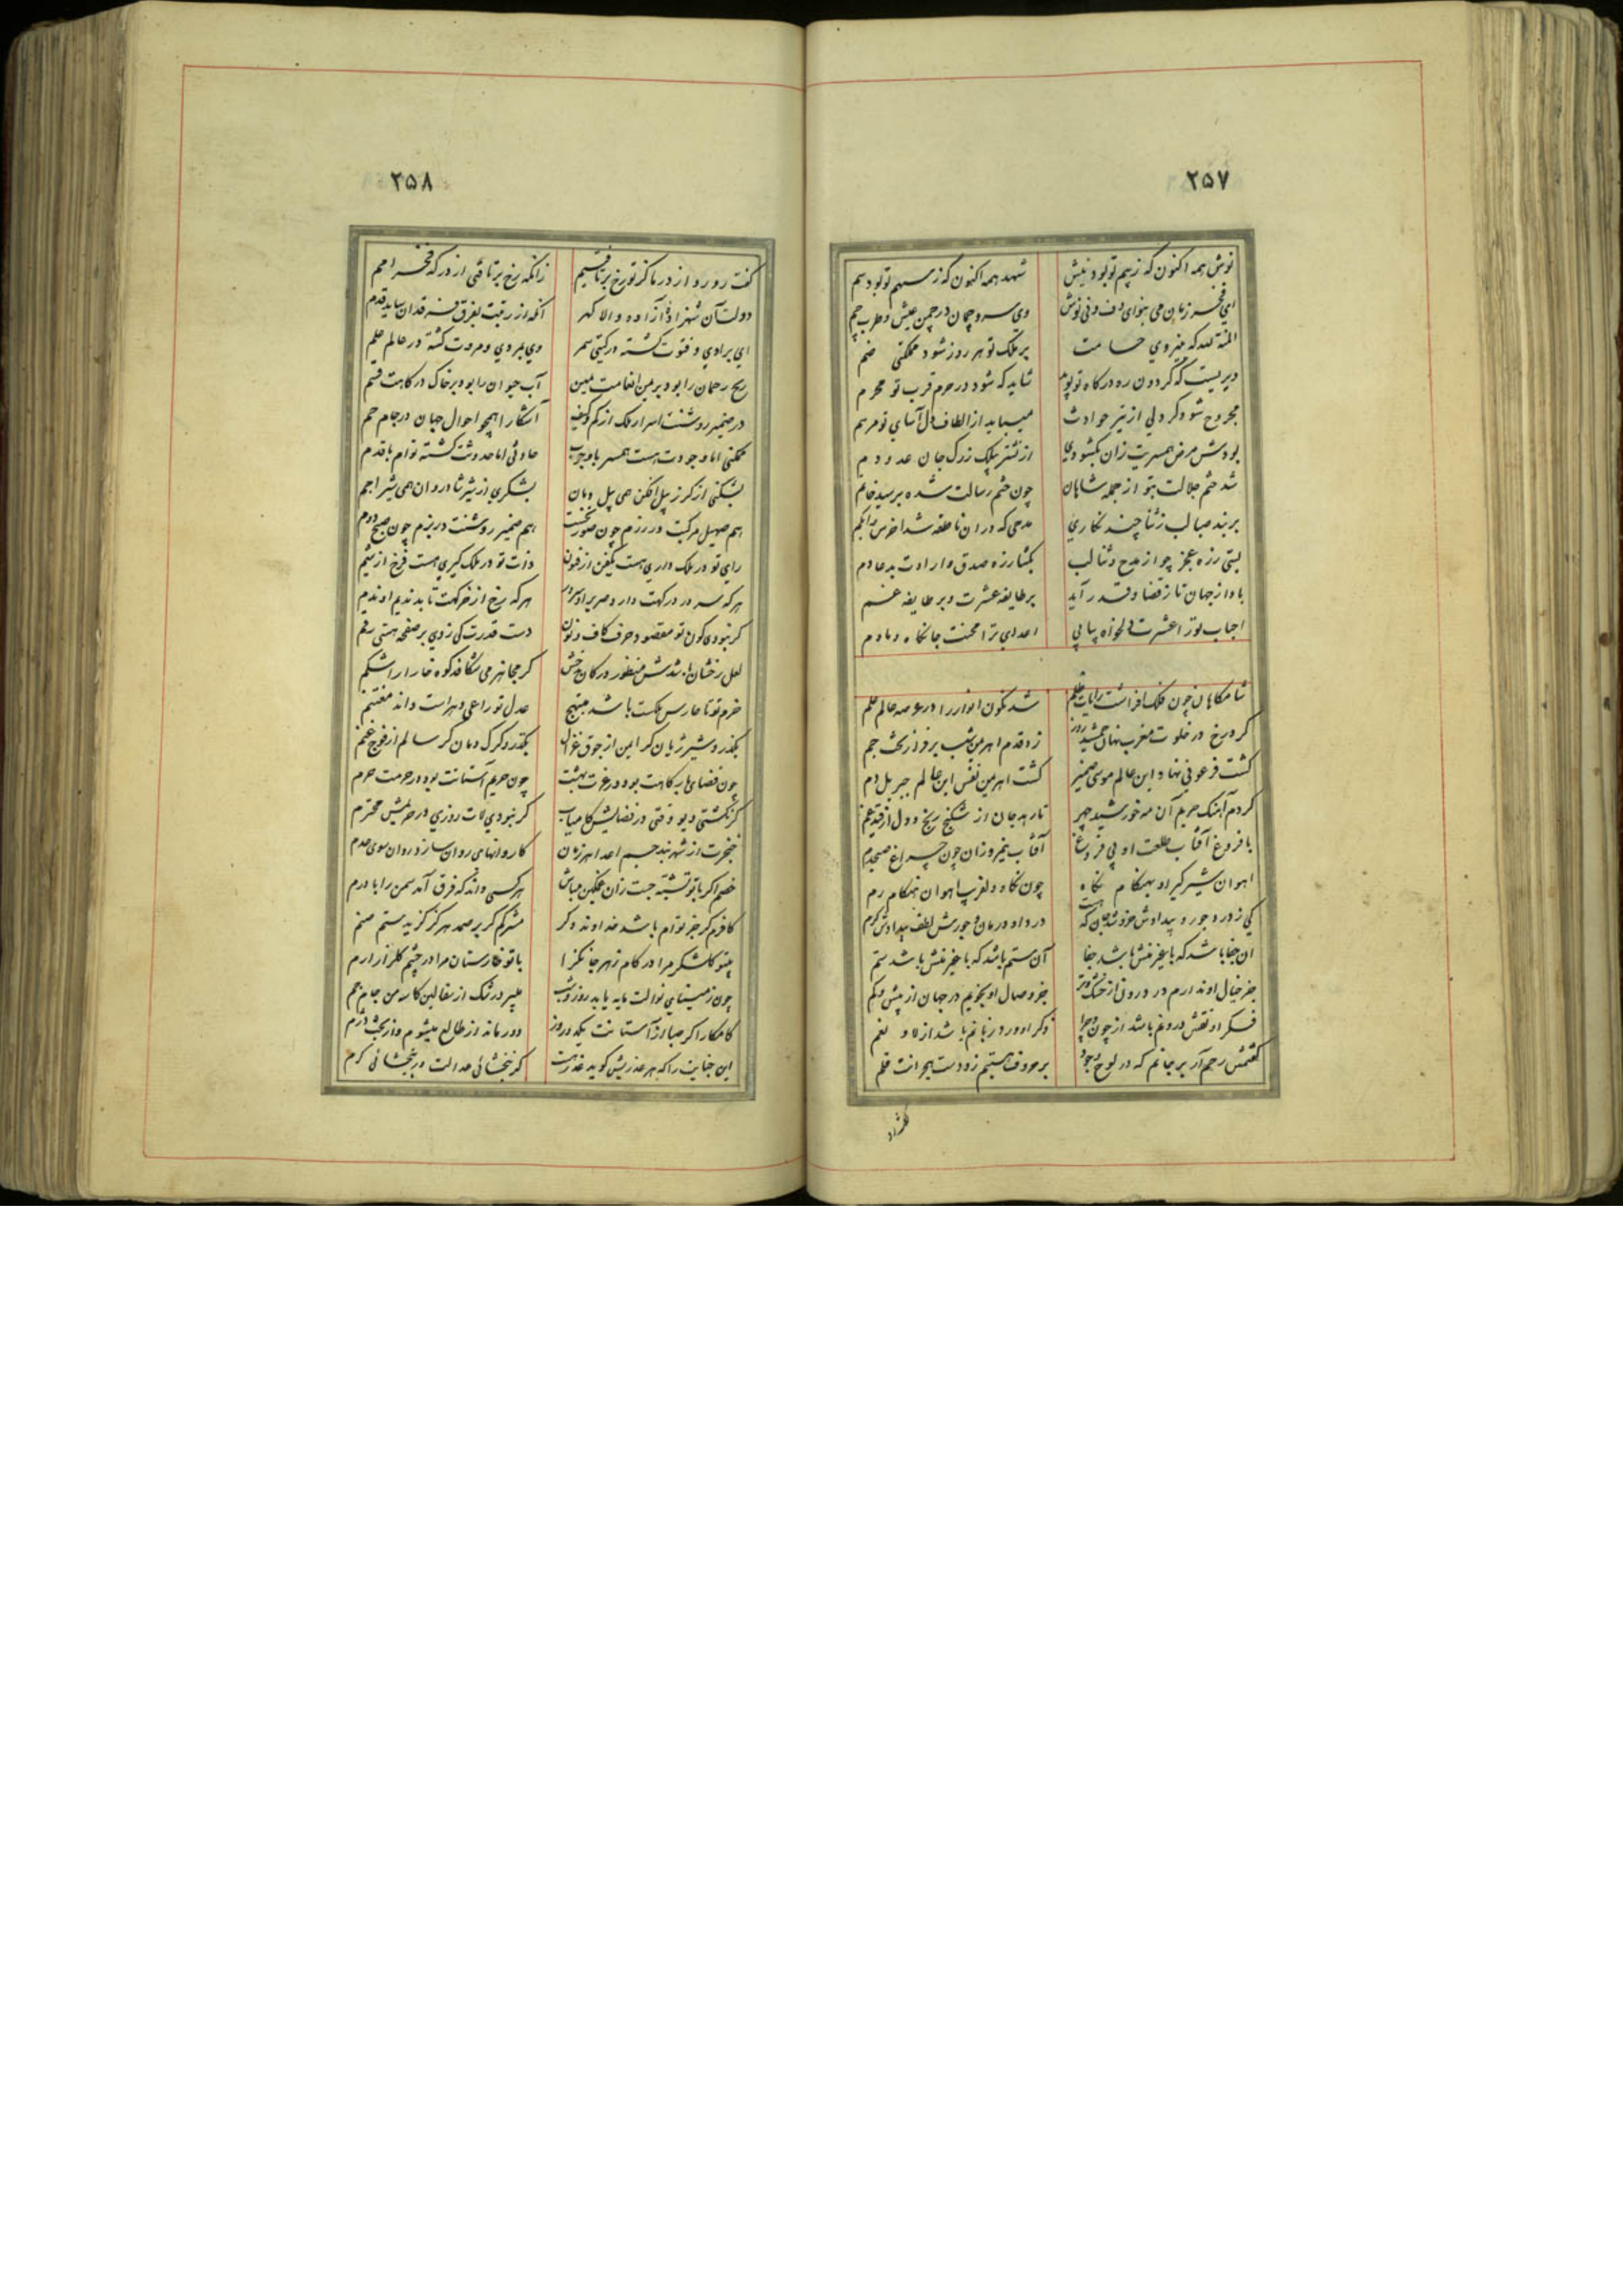 ۲۵۷
نوش همه اکنون که ز بیم تو بود نیش
شهد همه اکنون که ز سهم تو بود سم
ای فخر زمان می بنوای دف و نی نوش
وی سرو چمان در چمن عیش و طرب چم
المنة لله که به نیروی حسامت
بر ملک تو هر روز شود مملکتی ضم
دیریست که گردون ره درگاه تو پوید
شاید که شود در حرم قرب تو محرم
مجروح شود گر دلی از تیر حوادث
میباید از الطاف دل آسای تو مرهم
بودش مرض همسریت زان بگشودی
از نشتر پیلک ز رگ جان عدو دم
شد ختم جلالت بتو از جمله شاهان
چون ختم رسالت شده بر سید خاتم
بربند صبا لب ز ثنا چند نگاری
مدحی که در ان ناطقه شد اخرس و ابکم
بستی ز ره عجز چو از مدح و ثنا لب
بگشا ز ره صدق و ارادت بدعا دم
بادا ز جهان تا ز قضا و قدر آید
بر طایفه عشرت و بر طایفه غم
احباب تو را عشرت دلخواه پیاپی
اعدای ترا محنت جانکاه دمادم
شامگاهان چون فلک افراشت رایات ظلم
شد نگون انوار را در عرصه عالم علم
کرد رخ در خلوت مغرب نهان جمشید روز
زد قدم اهرمن شب بر فراز تخت جم
گشت فرعونی نهاد این عالم موسی ضمیر
گشت اهرمن نفس این عالم جبریل دم
کردم آهنگ حریم آن مه خورشید چهر
تا رهد جان از شکنج رنج و دل از قید غم
با فروغ آفتاب طلعت او بی فروغ
آفتاب نیمروزان چون چراغ صبحدم
اهوان شیرگیر او بهنگام نگاه
چون نگاه دلفریب اهوان هنگام رم
کی ز درد و جور و بیدادش خروشد جان که هست
درد او درمان و جورش لطف و بیدادش کرم
ان جفا باشد که با غیر منش باشد جفا
آن ستم باشد که با غیر منش باشد ستم
جز خیال او ندارم در درون از خشک و تر
جز وصال او نجویم در جهان از بیش و کم
فکر او نقش درونم باشد از چون و چرا
ذکر او ورد زبانم باشد از لا و نعم
گفتمش رحم آر بر جانم که در لوح وجود
بر حروف هستیم زد دست هجرانت قلم
۲۵۸
گفت رو رو از در ما کز تو رخ برتافتیم
زانکه رخ برتافتی از درگه فخر امم
دولت آن شهزاده آزاده والا گهر
آنکه از رتبت بفرق فرقدان ساید قدم
ای برادی و فتوت گشته در گیتی سمر
وی بمردی و مروت گشته در عالم علم
ریح رحمان را بود بر من انعامت یمین
آب حیوان را بود بر خاک درگاهت قسم
در ضمیر روشنت اسرار ملک از کم و کیف
آشکارا همچو احوال جهان در جام جم
ممکنی اما وجودت هست همسر با وجوب
حادثی اما حدوثت گشته توام با قدم
بشکنی از گرز پیل افکن همی پیل دمان
بشکری از شیر شادروان همی شیر اجم
هم صهیل مرکبت در رزم چون صور نخست
هم ضمیر روشنت در بزم چون صبح دوم
رای تو در ملک داری هست یکفن از فنون
ذات تو در ملک گیری هست فرخ از شیم
هرکه سر در درگهت دارد صریر او سریر
هرکه رخ از خرگهت تابد ندیم او ندم
گر نبودی کون تو مقصود حرف کاف و نون
دست قدرت کی زدی بر صفحه هستی رقم
لعل رخشان باشدش منظور در کان بدخش
گر مجاهر می شکافد کوه خارا را شکم
حزم تو تا حارس ملکت باشد مبتهج
عدل تو راعی و هراست داند مغتنم
بگذرد شیر ژیان گر ایمن از جوق غزال
بگذرد گرگ دمان گر سالم از فوج غنم
چون فضای بارگاهت بود در عزت بهشت
چون حریم آستانت بود در حرمت حرم
گر نگشتی دیو وقتی در فضایش کامیاب
گر نبودی لات روزی در حریمش محترم
خنجرت از شهربند جسم اعدا هر زمان
کاروانهای روان سازد روان سوی عدم
خصم اگر با تو تشبه جست زان غمگین مباش
هرکسی داند که فرق آمد سمن را با ورم
کافرم گر جز تو ام باشد خداوند دگر
مشرکم گر بر صمد هرگز گزیدستم صنم
بیتو گلشکر مرا در کام زهر جانگزا
با تو خارستان مرا در چشم گلزار ارم
چون زمیستای نوالت مایه یابد روز و شب
میبرد رشک از سفالین کاسه من جام جم
کامکارا گر صبا از آستانت یکدو روز
دور ماند از طالع میشوم و از بخت دژم
این جنایت را که هر عذریش گوید عذر نیست
گر نبخشائی عدالت ور ببخشائی کرم